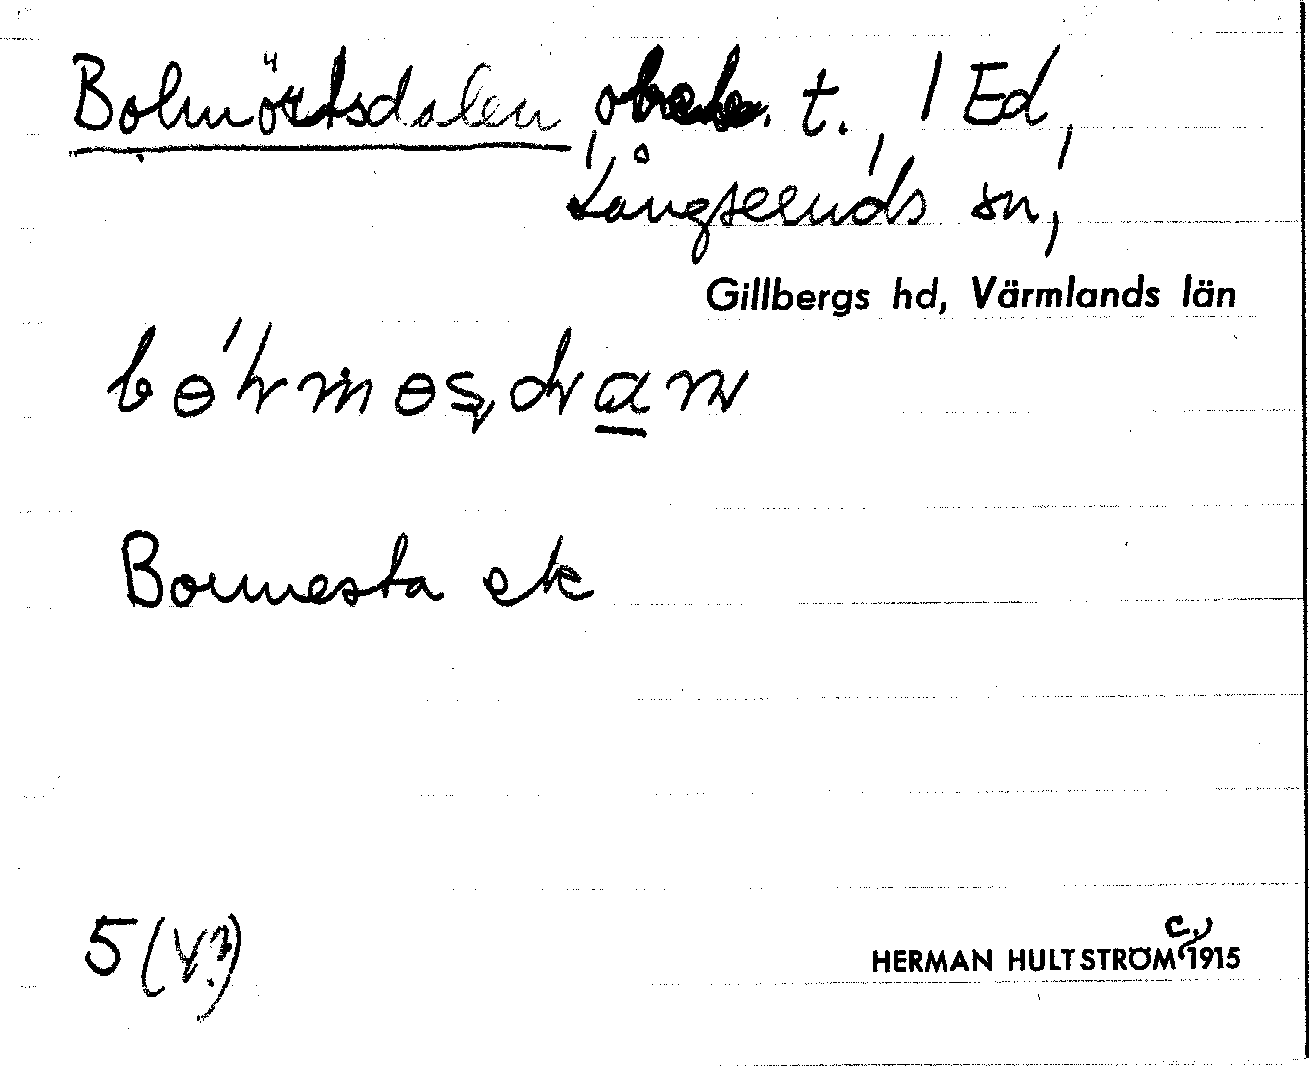 Bolmörtsdalen, obeb. t., / Ed,
Långseruds sn,
Gillbergs hd, Värmlands län
Bormesta ek
5 (V?)
HERMAN HULTSTRÖM c. 1915